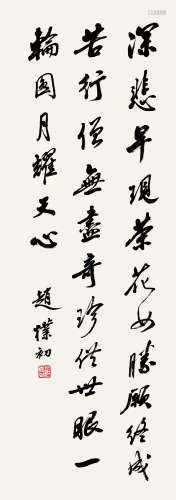 深悲早现茶花女胜愿终成
苦行僧無盡奇珍供世眼一
輪圓月耀天心
趙樸初